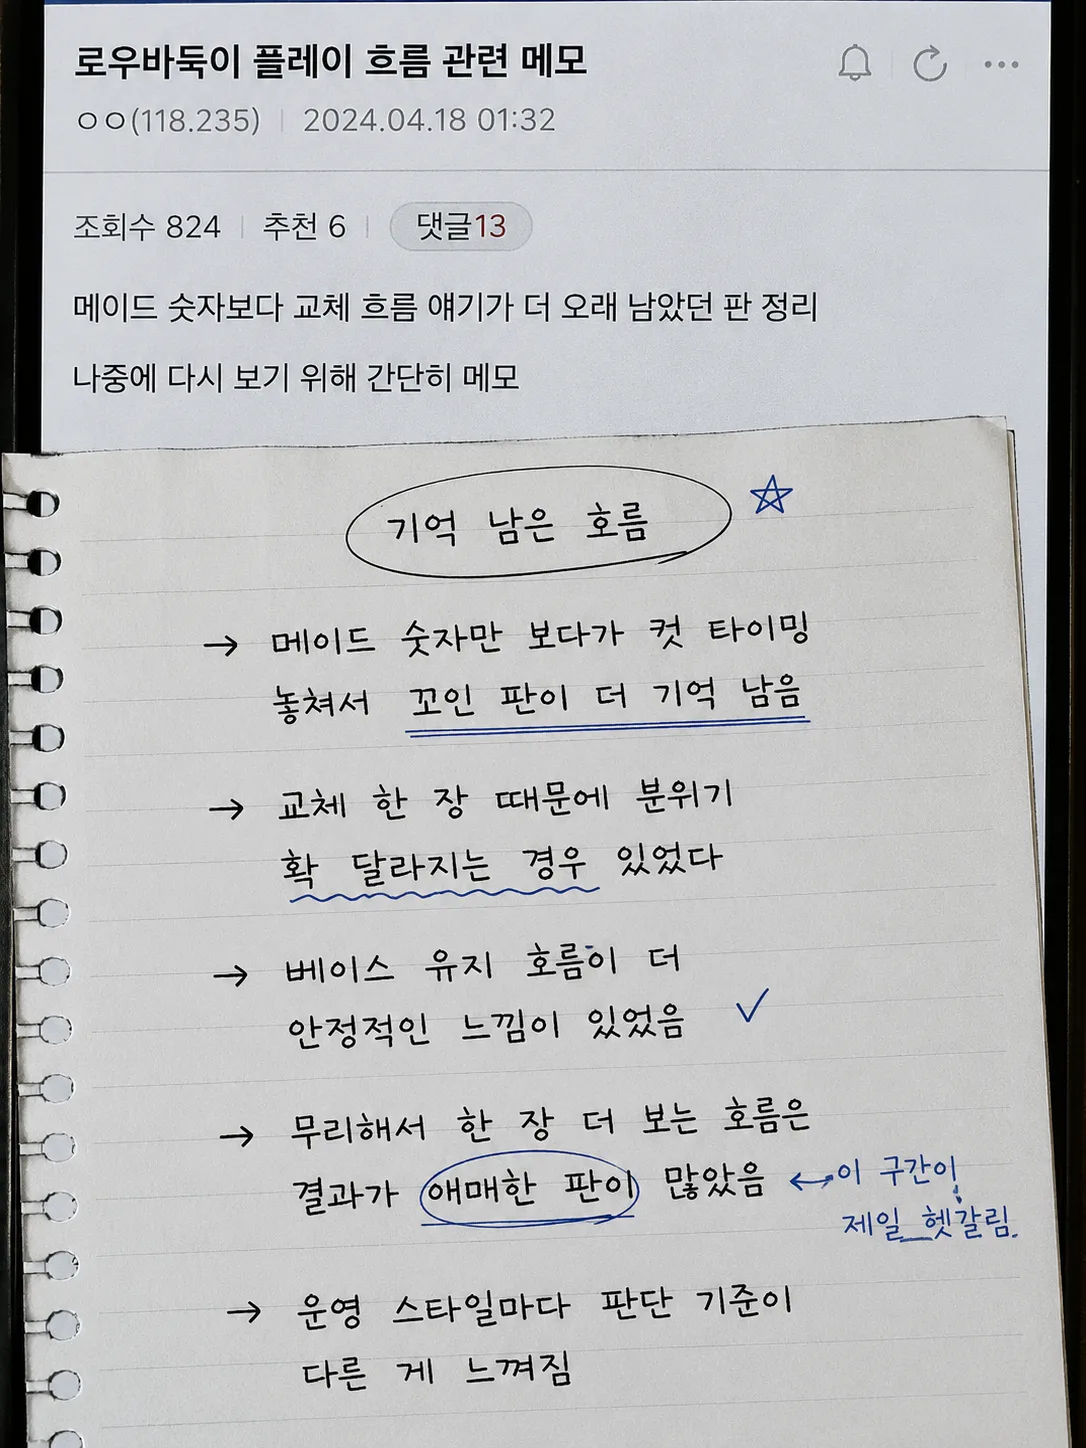 로우바둑이 플레이 흐름 관련 메모
ㅇㅇ(118.235) | 2024.04.18 01:32
조회수 824 | 추천 6 | 댓글13
메이드 숫자보다 교체 흐름 얘기가 더 오래 남았던 판 정리
나중에 다시 보기 위해 간단히 메모
기억 남은 흐름 ☆
→ 메이드 숫자만 보다가 컷 타이밍
놓쳐서 꼬인 판이 더 기억 남음
→ 교체 한 장 때문에 분위기
확 달라지는 경우 있었다
→ 베이스 유지 흐름이 더
안정적인 느낌이 있었음 ✓
→ 무리해서 한 장 더 보는 흐름은
결과가 애매한 판이 많았음 ↔ 이 구간이
제일 헷갈림.
→ 운영 스타일마다 판단 기준이
다른 게 느껴짐